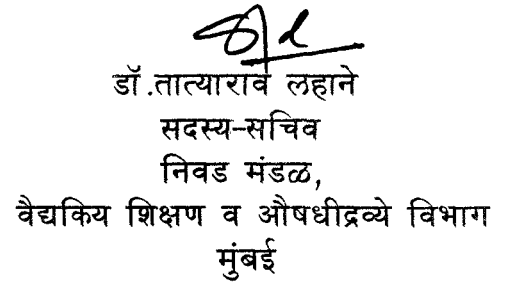 डॉ.तात्याराव लहाने
सदस्य-सचिव
निवड मंडळ,
वैद्यकिय शिक्षण व औषधीद्रव्ये विभाग
मुंबई